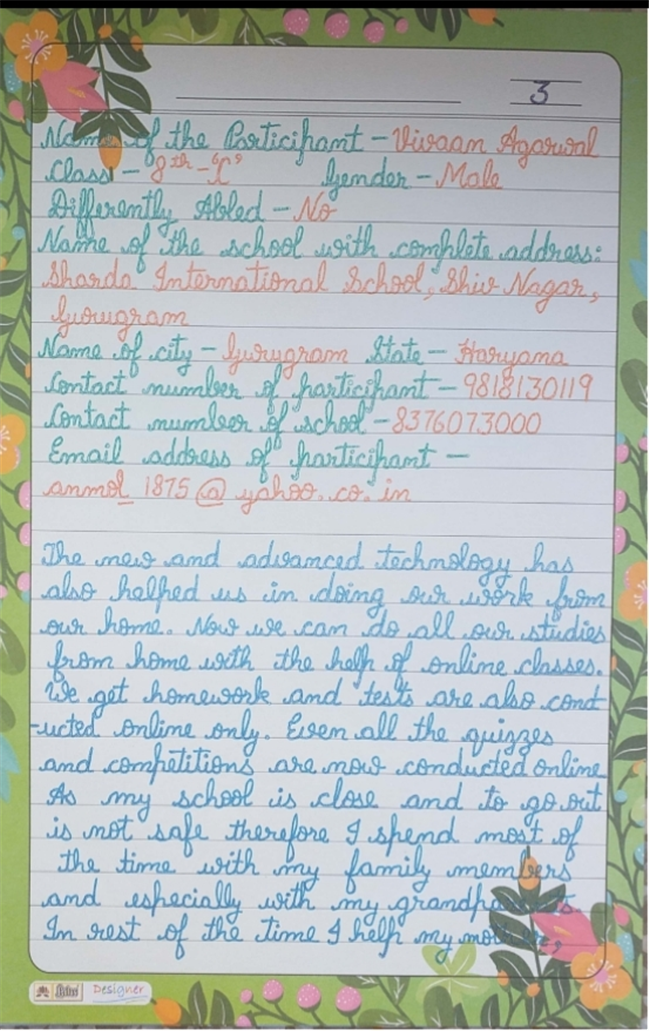 3
Name of the Participant - Vivaan Agarwal
Class - 8th - "C" Gender - Male
Differently Abled - No
Name of the school with complete address:
Sharda International School, Shiv Nagar,
Gurugram
Name of city - Gurugram State - Haryana
Contact number of participant - 9818130119
Contact number of school - 8376073000
Email address of participant -
anmol_1875@yahoo.co.in
The new and advanced technology has
also helped us in doing our work from
our home. Now we can do all our studies
from home with the help of online classes.
We get homework and tests are also cond
-ucted online only. Even all the quizzes
and competitions are now conducted online
As my school is close and to go out
is not safe therefore I spend most of
the time with my family members
and especially with my grandparents.
In rest of the time I help my mother,
Designer